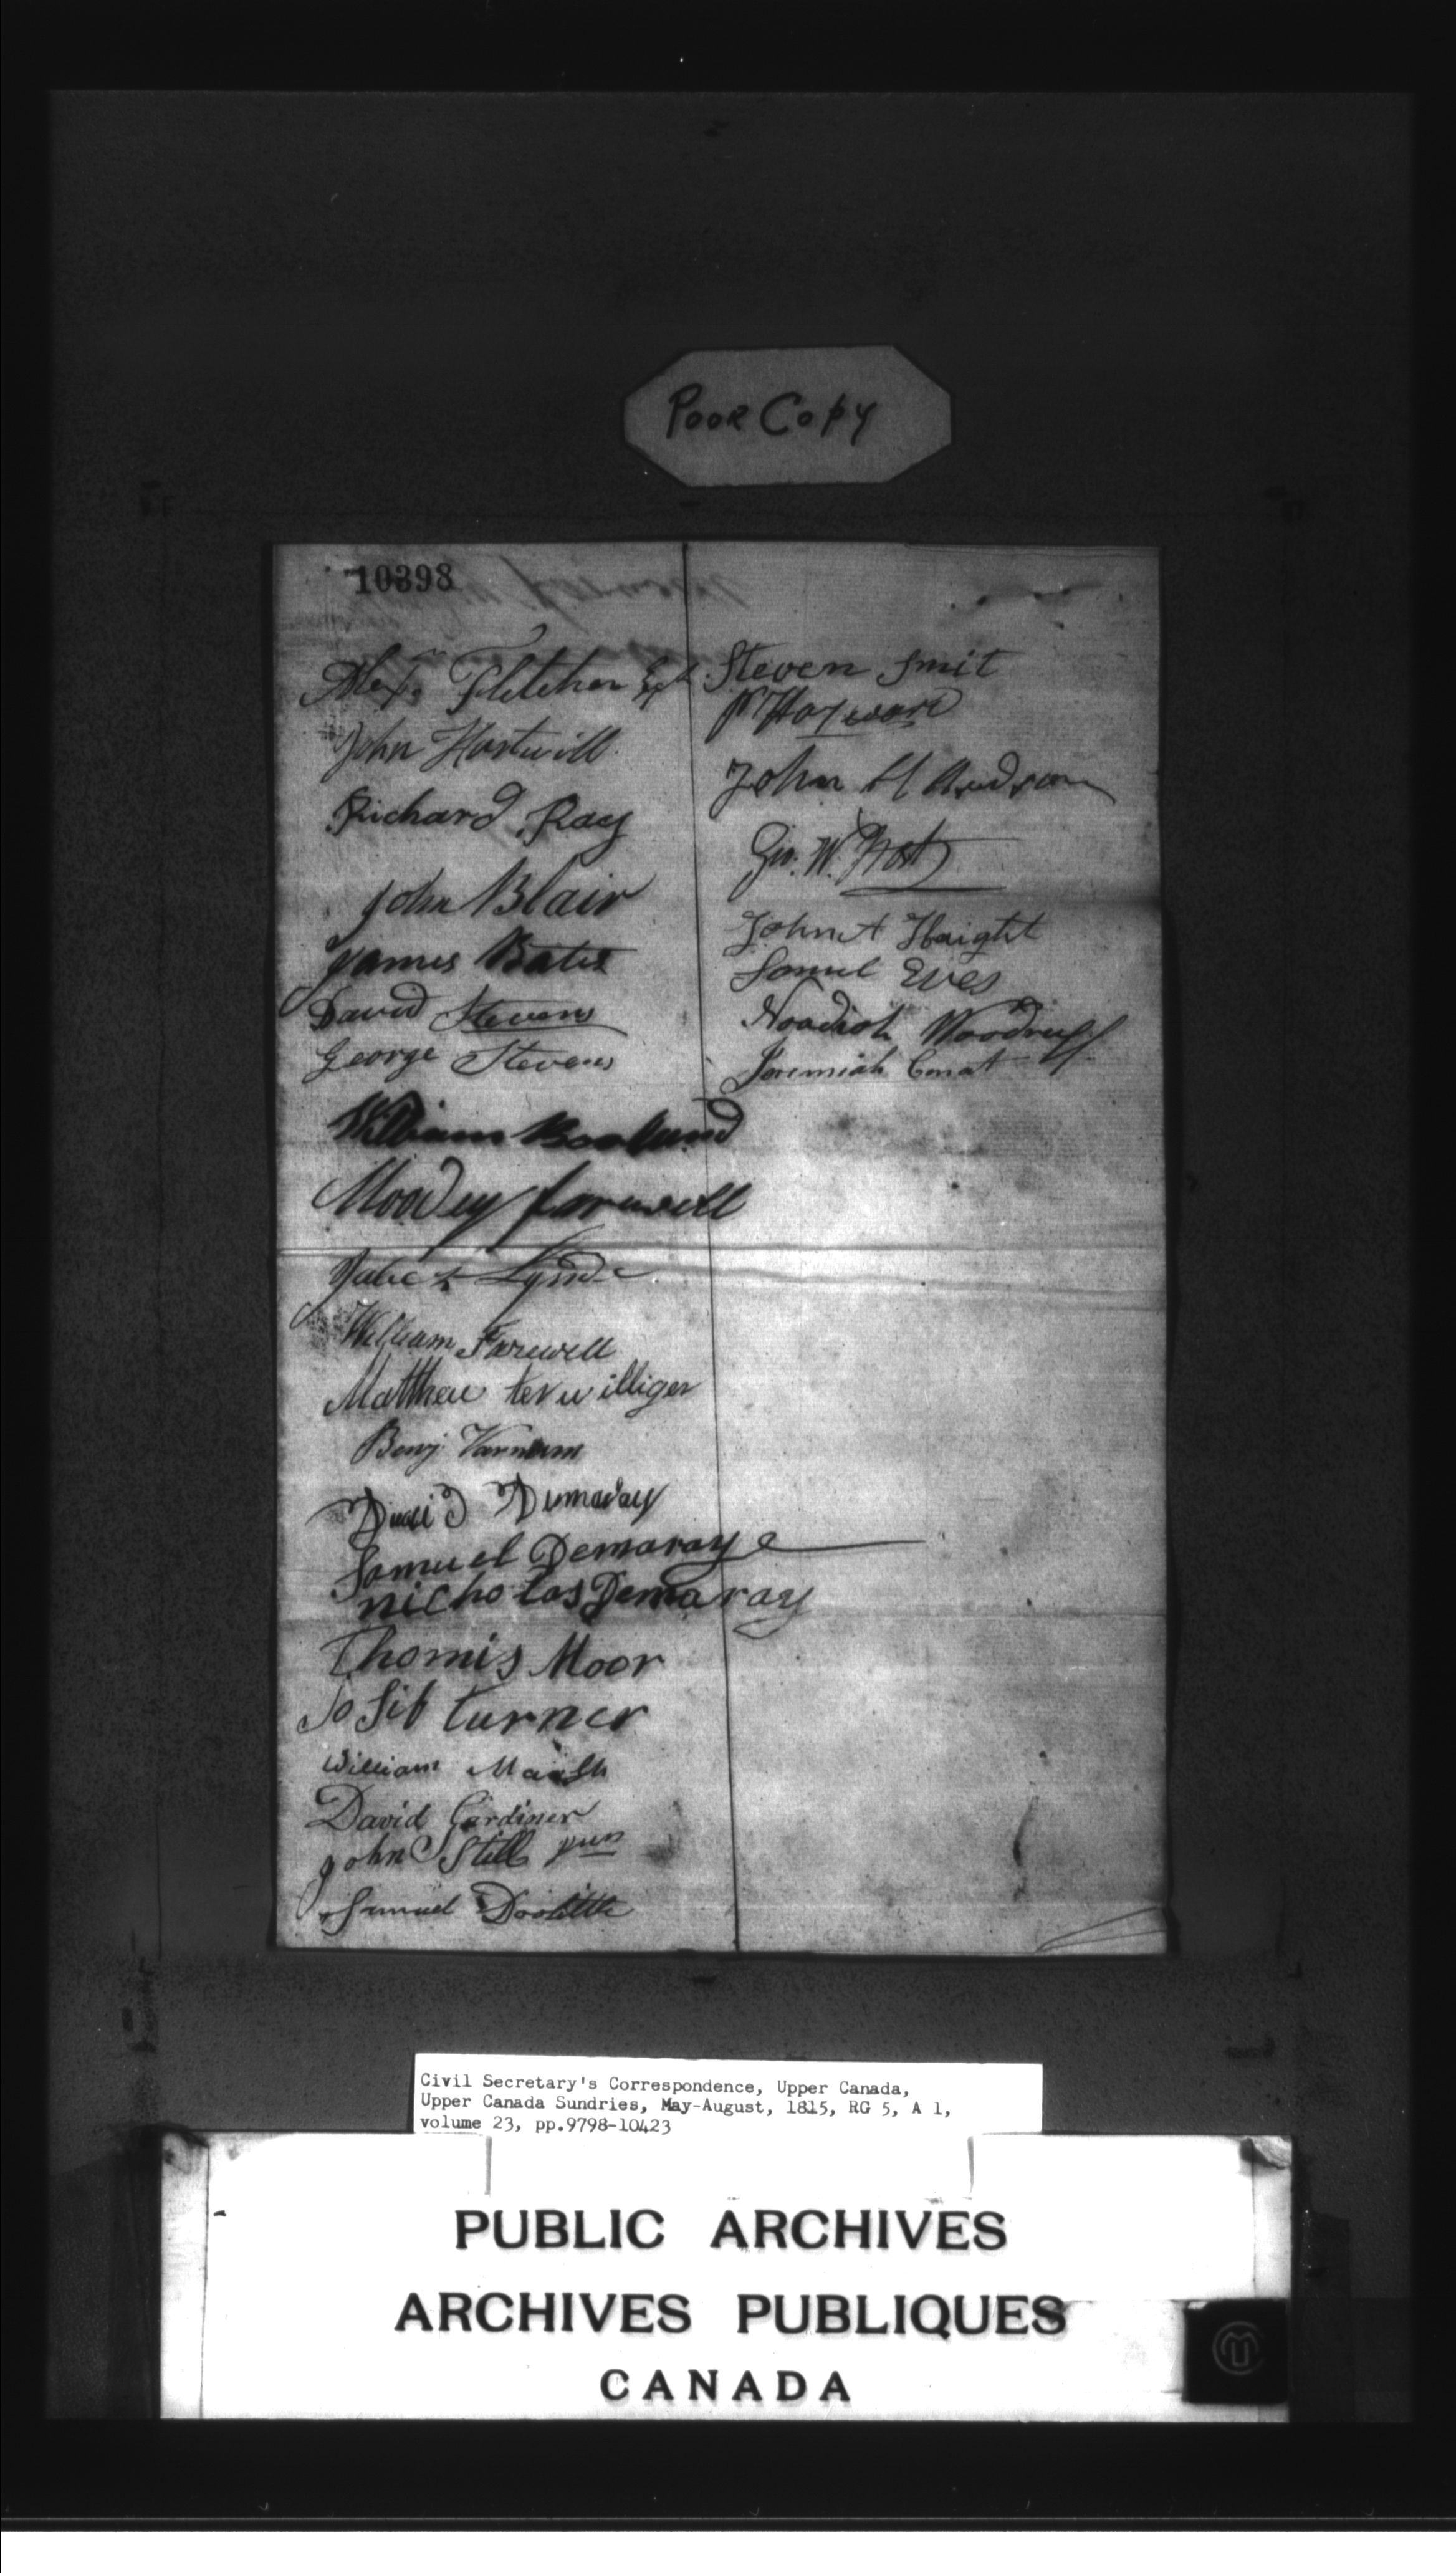 Poor Copy
10398
Alexr. Fletcher Esqr
John Hartwill
Richard Ray
John Blair
James Bates
David Stevens
George Stevens
William Borland
Moodey farewell
Jabez Lynde
William Farewell
Matthew terwilliger
Benj Varnum
David Dumaray
Samuel Demaray
nicholas Demaray
Thomis Moor
Josib turner
William Marsh
David Gardiner
John Still jun
Samuel Doolittle
Steven Smit
Hayward
John H
Geo. W. Post
John A Haight
Samul Eves
Noadiah Woodruff
Jeremiah Conat
Civil Secretary's Correspondence, Upper Canada,
Upper Canada Sundries, May-August, 1815, RG 5, A 1,
volume 23, pp.9798-10423
PUBLIC ARCHIVES
ARCHIVES PUBLIQUES
CANADA